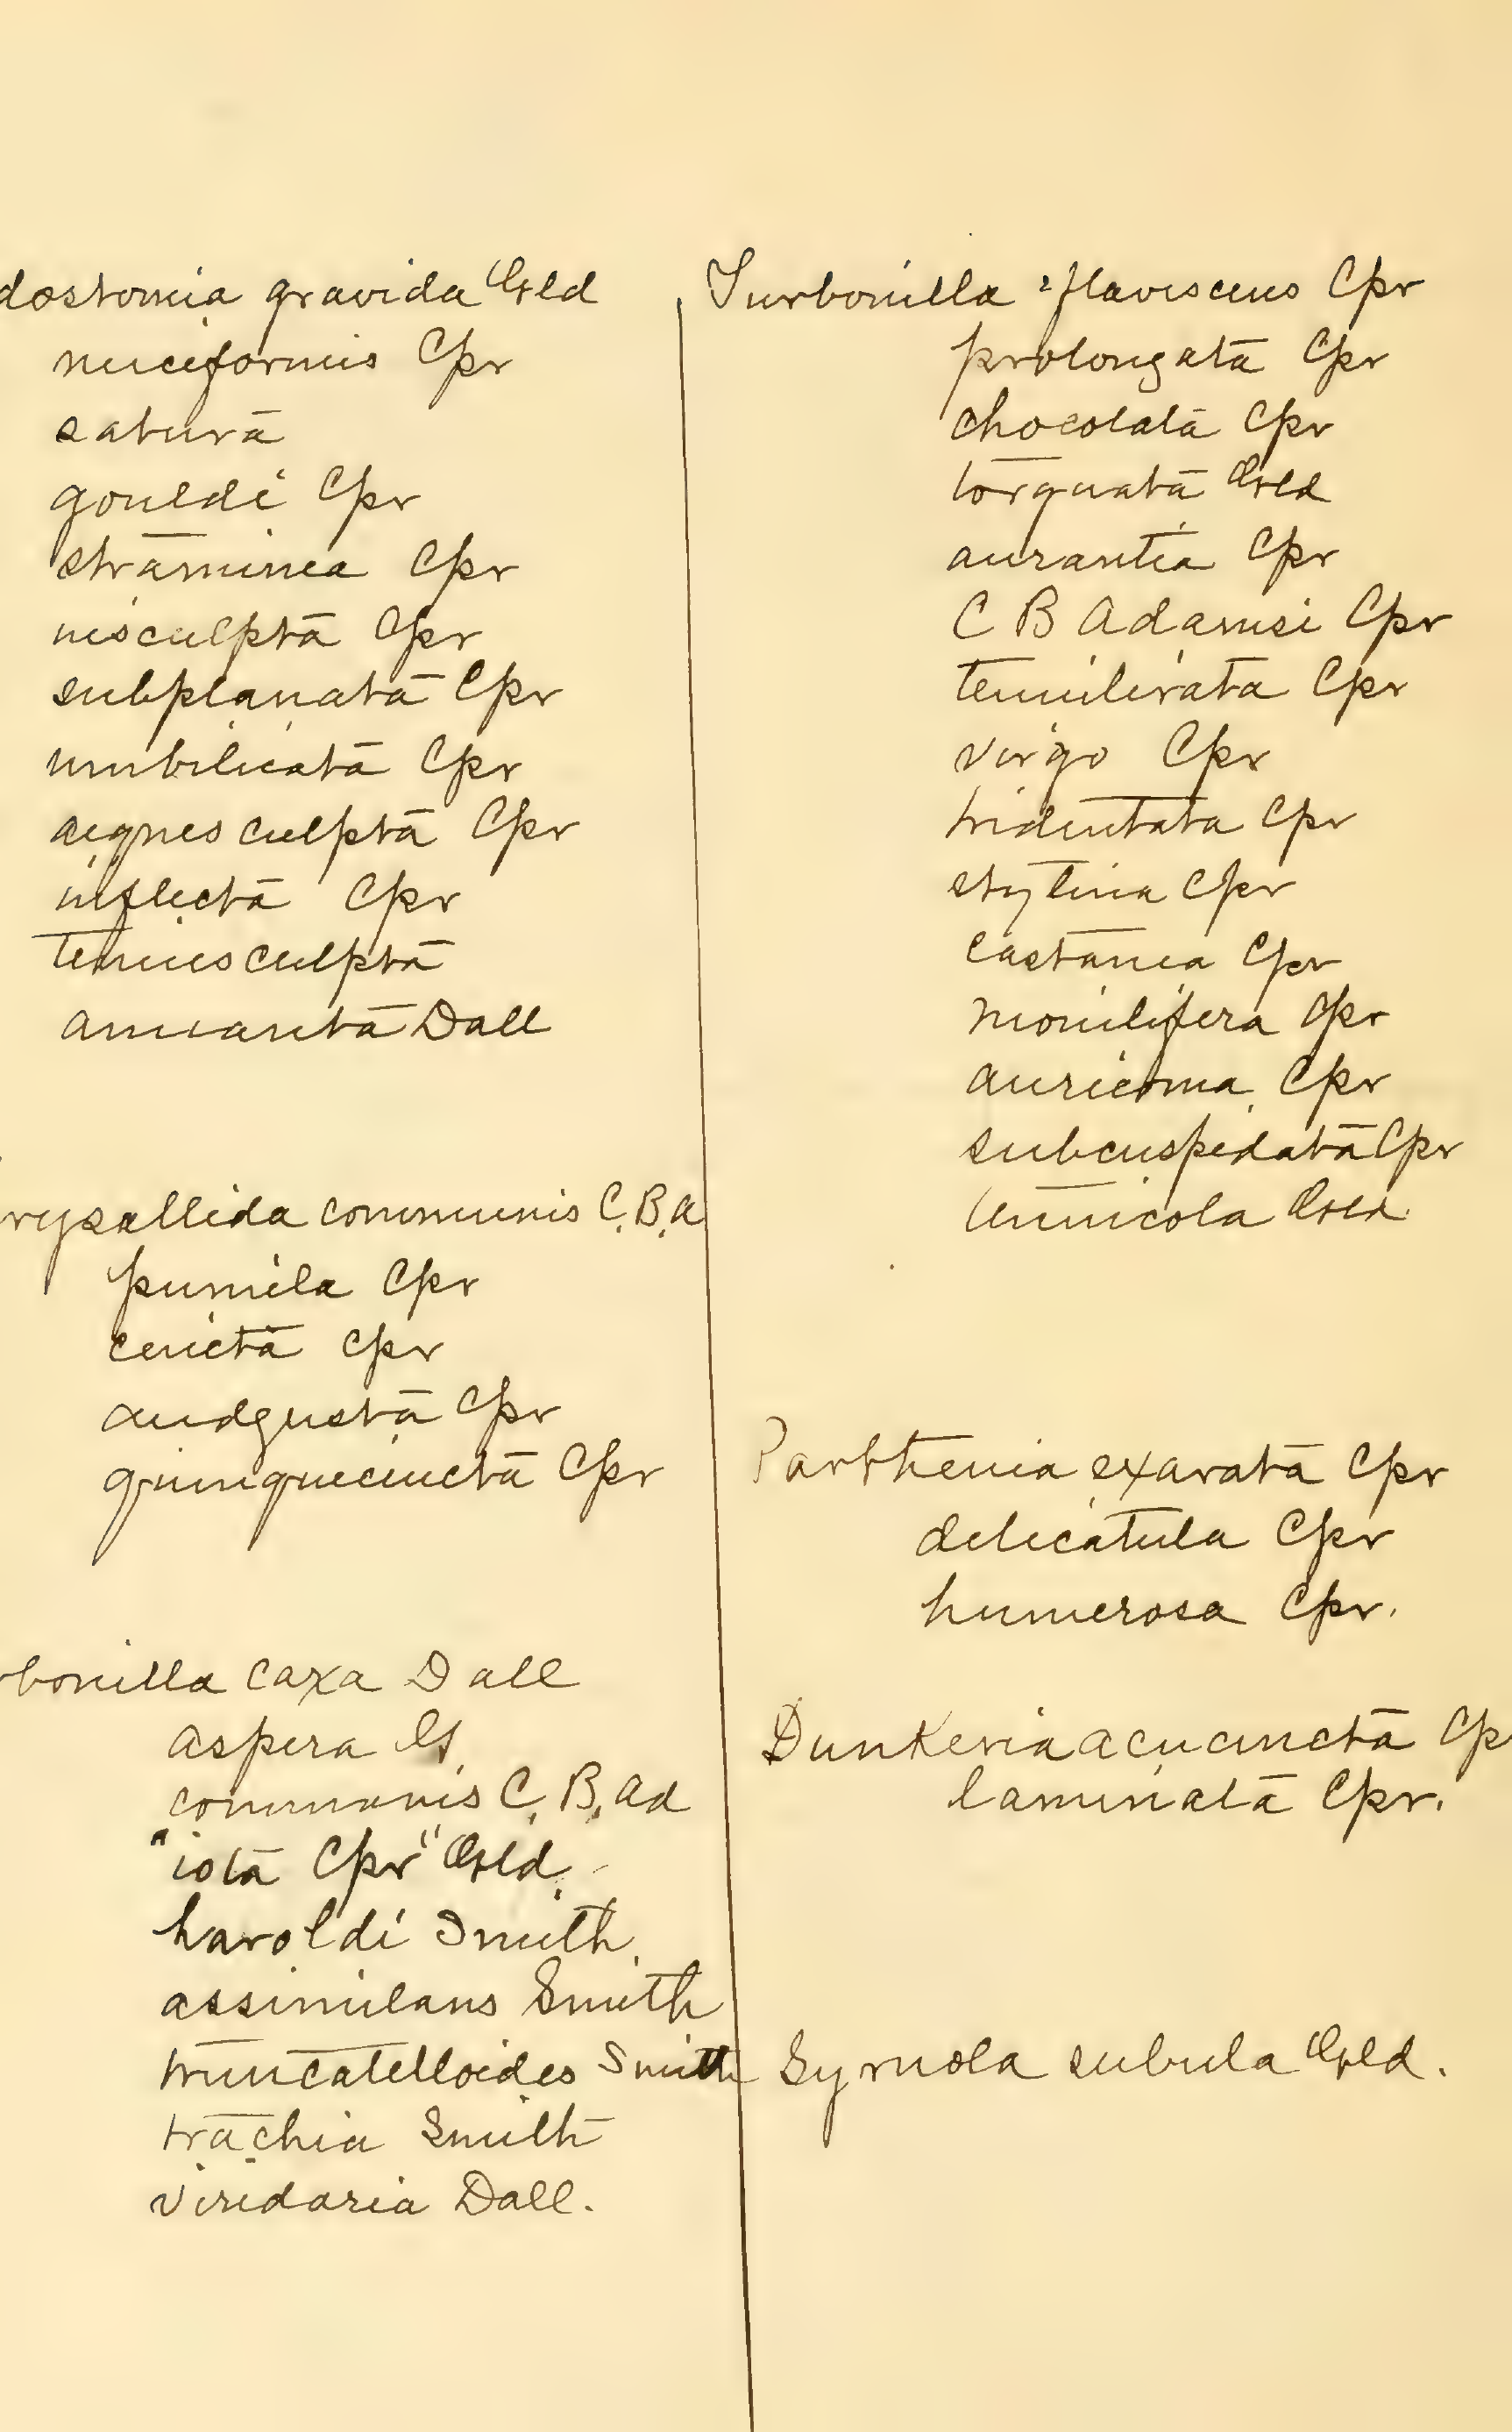 dostomia gravida Gld
nuciformis Cpr
satura
gouldi Cpr
straminea Cpr
insculpta Cpr
subplanata Cpr
umbilicata Cpr
aequisculpta Cpr
inflecta Cpr
tenuisculpta
amianta Dall
rysallida communis C.B.A
pumila Cpr
cincta Cpr
audgusta Cpr
quinquecincta Cpr
bonilla caxa Dall
aspera
communis C.B.Ad
"iota Cpr" Gld
haroldi Smith
assimilans Smith
truncatelloides Smith
trachia Smith
viridaria Dall.
Turbonilla flavescens Cpr
prolongata Cpr
chocolata Cpr
torquata Gld
aurantia Cpr
C B Adamsi Cpr
tenuilirata Cpr
virgo Cpr
tridentata Cpr
stylina Cpr
castanea Cpr
monilifera Cpr
auricoma Cpr
subcuspidata Cpr
tennicola Gld
Parthenia exarata Cpr
delicatula Cpr
humerosa Cpr.
Dunkeria acucincta Cp
laminata Cpr.
Syrnola subula Gld.